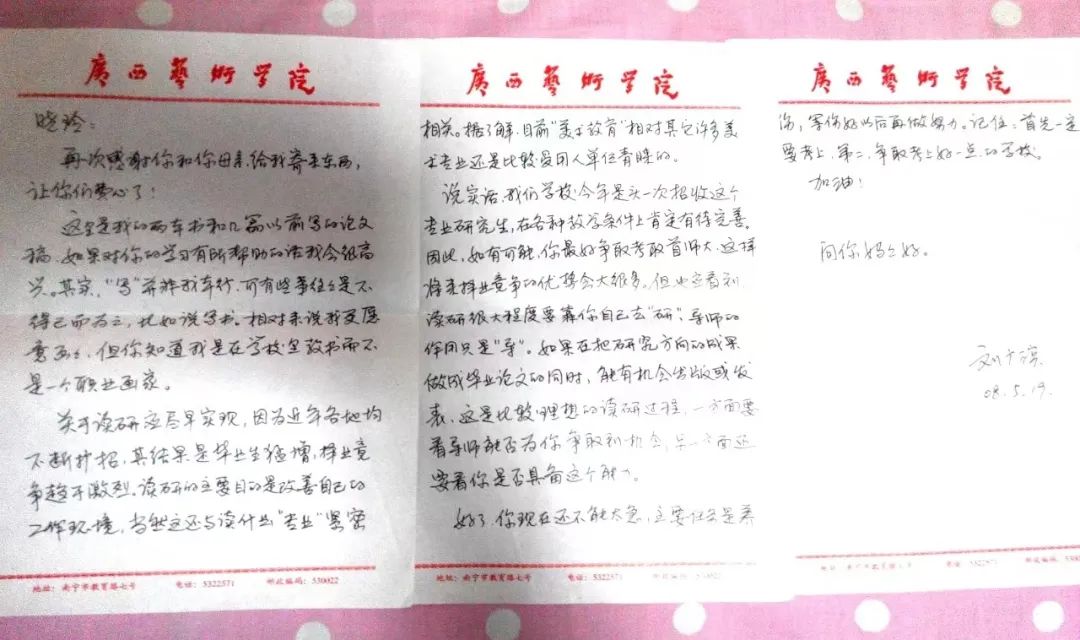 廣西藝術学院
晓玲：
再次感谢你和你母亲给我寄来东西，
让你们费心了！
这里是我的两本书和几篇以前写的论文
稿，如果对你的学习有所帮助的话我会很高
兴。其实，“写”并非我本行，可有些事往往是不
得已而为之，比如说写书。相对来说我更愿
意画画，但你知道我是在学校里教书而不
是一个职业画家。
关于读研应尽早实现，因为近年各地均
不断扩招，其结果是毕业生猛增，择业竞
争趋于激烈。读研的主要目的是改善自己的
工作环境，当然这还与读什么“专业”紧密
地址：南宁市教育路七号 电话：5322571 邮政编码：530022
廣西藝術学院
相关。据了解，目前“美术教育”相对其它许多美
术专业还是比较受用人单位青睐的。
说实话，我们学校今年是头一次招收这个
专业研究生，在各种教学条件上肯定有待完善。
因此，如有可能，你最好争取考取首师大，这样
将来择业竞争的优势会大很多。但也应看到，
读研很大程度要靠你自己去“研”，导师的
作用只是“导”。如果在把研究方向的成果
做成毕业论文的同时，能有机会出版或发
表，这是比较理想的读研过程，一方面要
看导师能否为你争取到机会，另一方面还
要看你是否具备这个能力。
好了，你现在还不能太急，主要任务是养
地址：南宁市教育路七号 电话：5322571 邮政编码：530022
廣西藝術学院
伤，等伤好以后再做努力。记住：首先一定
要考上，第二，争取考上好一点的学校。
加油！
问你妈妈好。
08.5.19.
地址：南宁市教育路七号 电话：5322571 邮政编码：530022